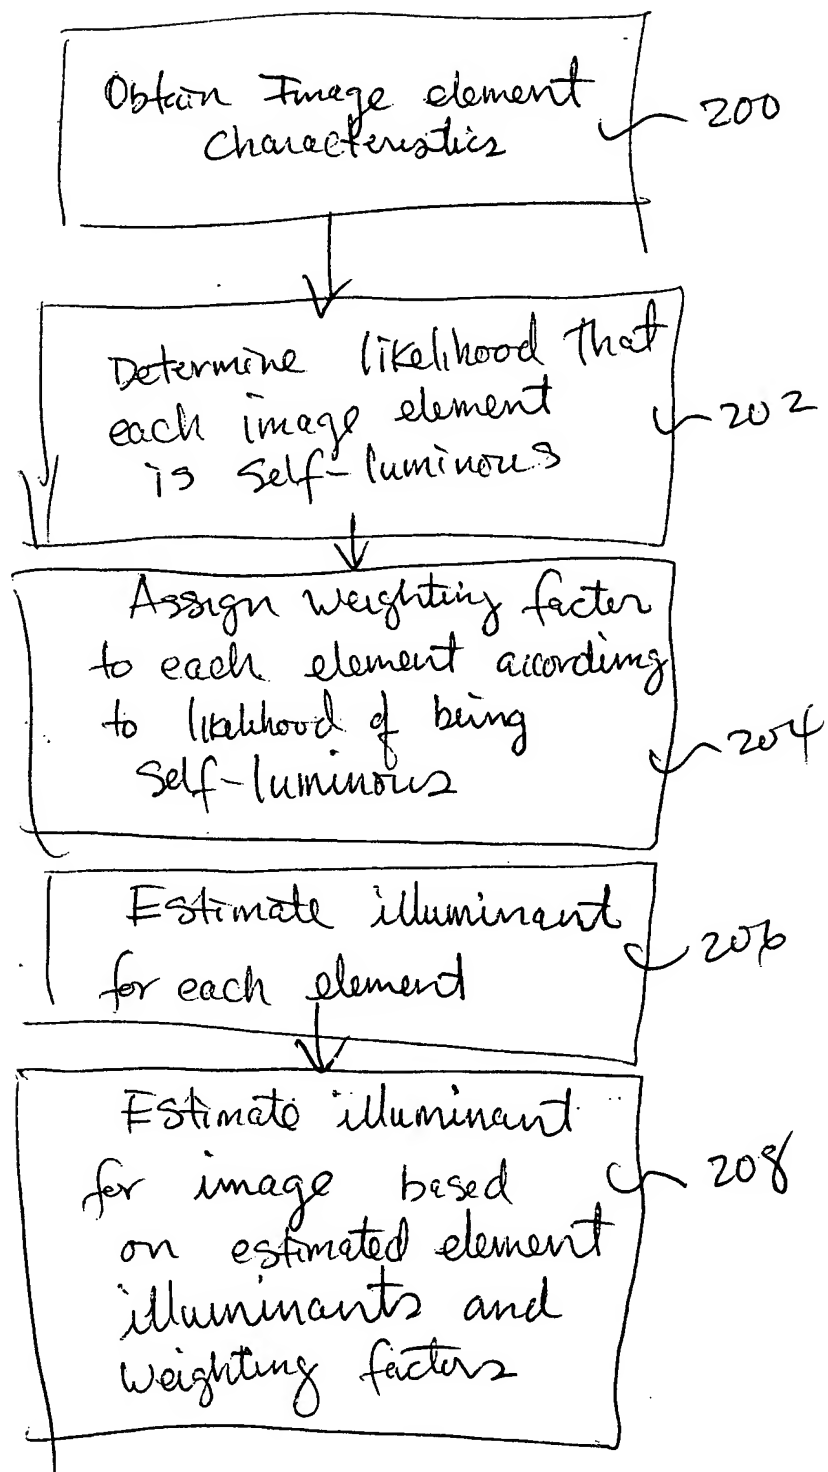 Obtain Image element
characteristics
200
Determine likelihood that
each image element
is self-luminous
202
Assign weighting factor
to each element according
to likelihood of being
self-luminous
204
Estimate illuminant
for each element
206
Estimate illuminant
for image based
on estimated element
illuminants and
weighting factors
208